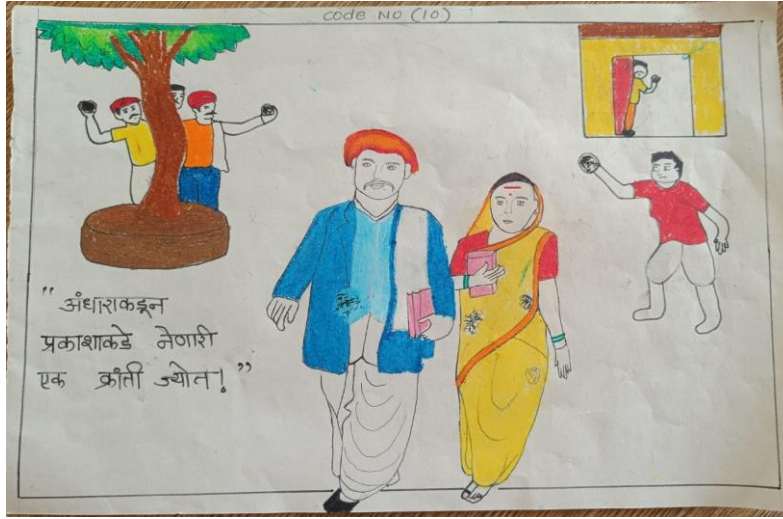 code NO (10)
"अंधाराकडून
प्रकाशाकडे नेणारी
एक क्रांती ज्योत!"